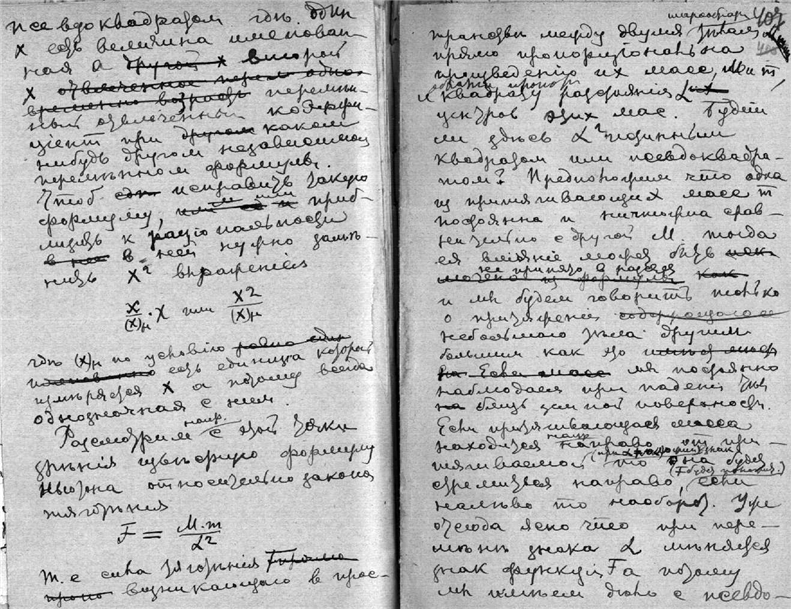 псевдоквадратом гдѣ один
х есть величина именован-
ная а другой х второй
х отвлеченное перем одно-
временно возраст перемѣн-
ный отвлеченный коэффи-
циент при другом каком
нибудь другом независимом
перемѣнном формулы.
Чтоб исправить такую
формулу, или приб-
лизить к рациональности
в ней нужно замѣ-
нить х² выражением
х/(х)μ · х или х²/(х)μ
гдѣ (х)μ по условию
есть единица которой
измѣряется х а потому всегда
однозначная с ним.
Рассмотрим напр. с этой точки
зрѣнія извѣстную формулу
Ньютона относительно закона
тяготѣнія
F = M·m/α²
т.е сила тяготѣнія Fпрямо
возникающаго в прос-
407
транстви между двумя тѣлами
прямо пропорціональна
произведенію их масс, M и m,
обратно пропор.
и квадрату разстоянія α их
центров этих мас. Будет
ли здѣсь α² истинным
квадратом или псевдоквадра-
том? Предположим что одна
из притягивающих масс m
постоянна и ничтожна срав-
нительно с другой M, тогда
ея вліяніе может быть
не принято в разсчет
и мы будем говорить только
о притяженіи
небольшого тѣла другим
большим как это
мы постоянно
наблюдаем при паденіи тѣл
на близь земной поверхности.
Если притягивающая масса
находится напр. направо от при-
тягиваемой то она будет
(F будет положит.)
стремиться направо, если
налѣво то наоборот. Уже
отсюда ясно что при пере-
мѣнѣ знака α мѣняется
знак функціи F а потому
мы имѣем дѣло с псевдо-